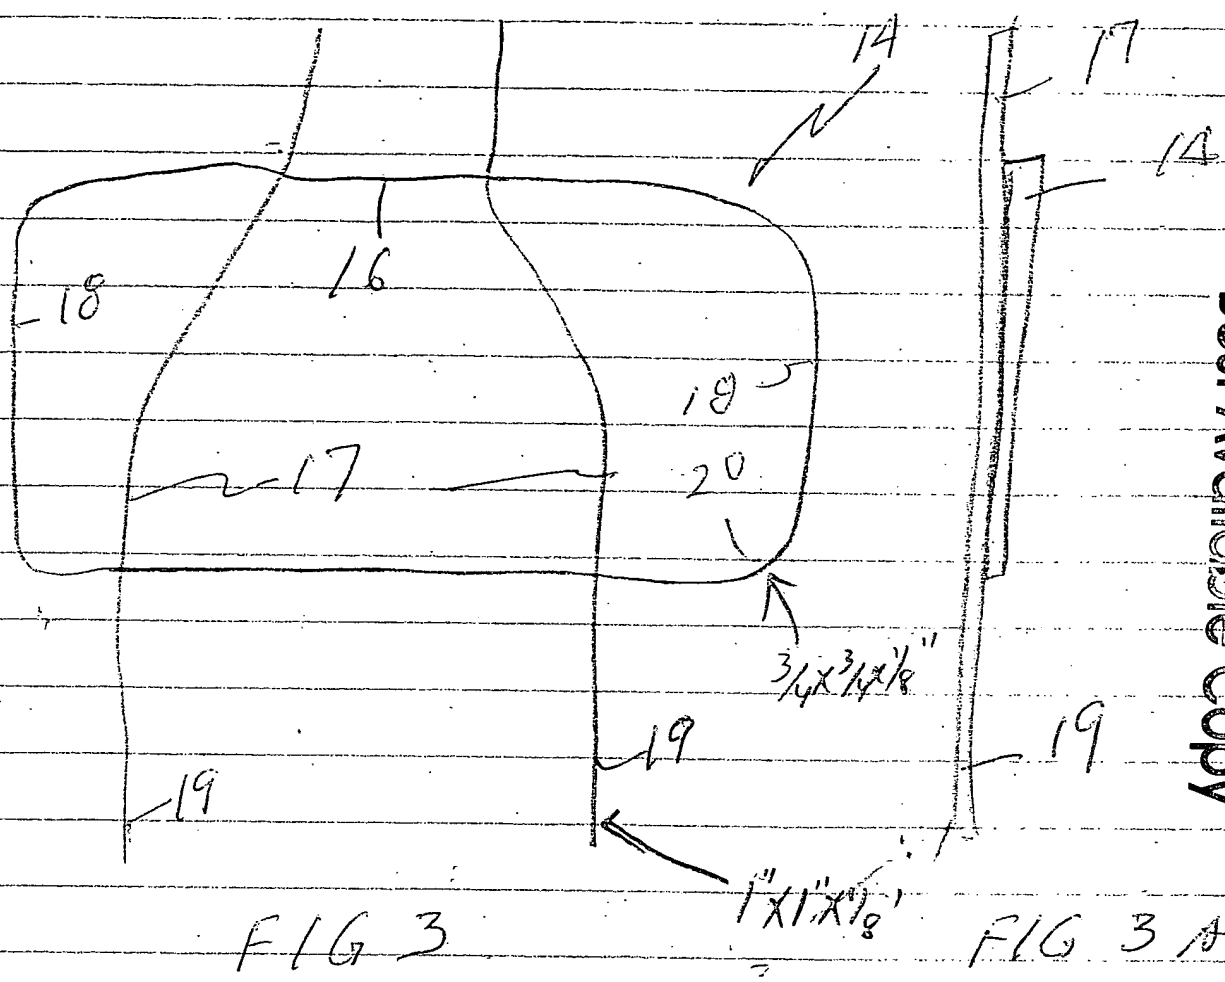 14
17
14
16
18
18
17
20
3/4x3/4x1/8"
19
19
19
1"x1"x1/8"
FIG 3
FIG 3A
Best Available Copy